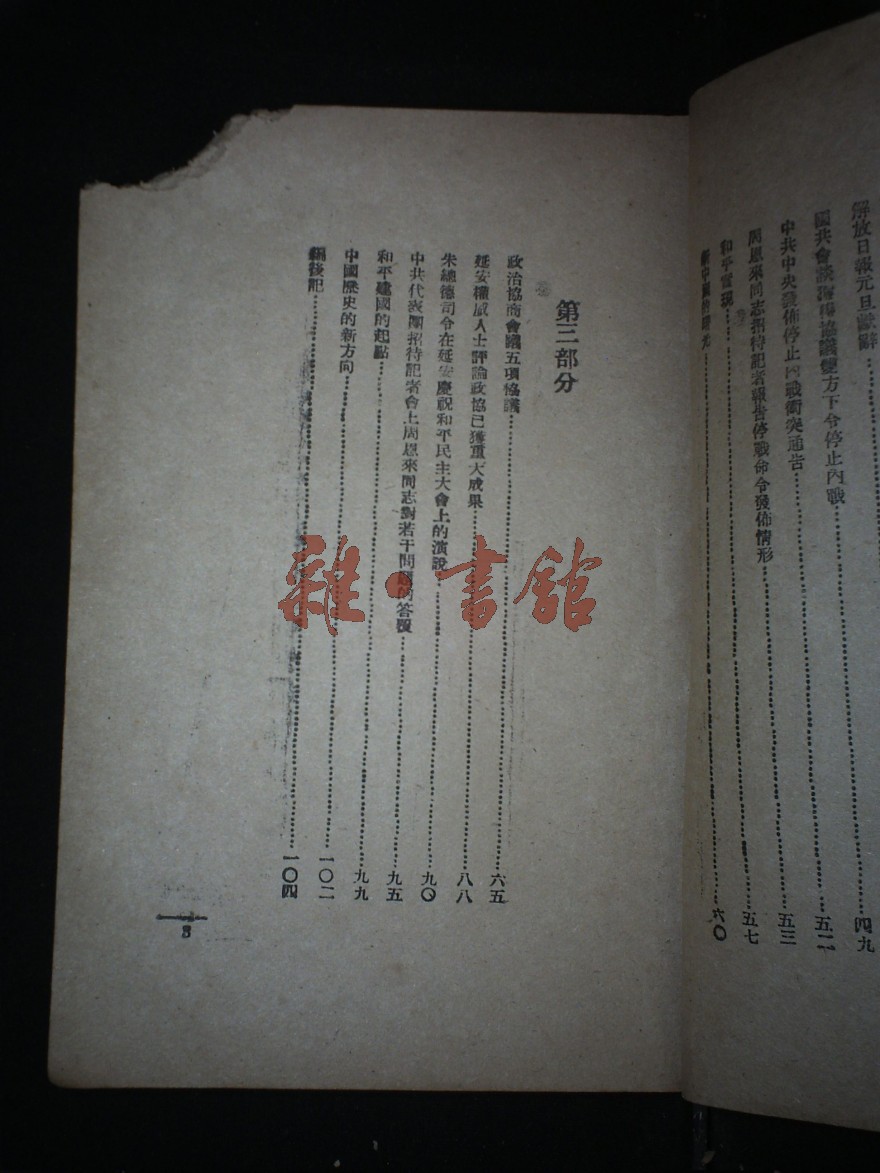 解放日報元旦獻辭……四九
國共會談獲得協議雙方下令停止內戰……五二
中共中央發佈停止內戰衝突通告……五三
周恩來同志招待記者報告停戰命令發佈情形……五七
和平實現
新中國的曙光……六〇
第三部分
政治協商會議五項協議……六五
延安權威人士評論政協已獲重大成果……八八
朱總德司令在延安慶祝和平民主大會上的演說……九〇
中共代表團招待記者會上周恩來同志對若干問題的答覆……九五
和平建國的起點……九九
中國歷史的新方向……一〇二
編後記……一〇四
3
雜·書館